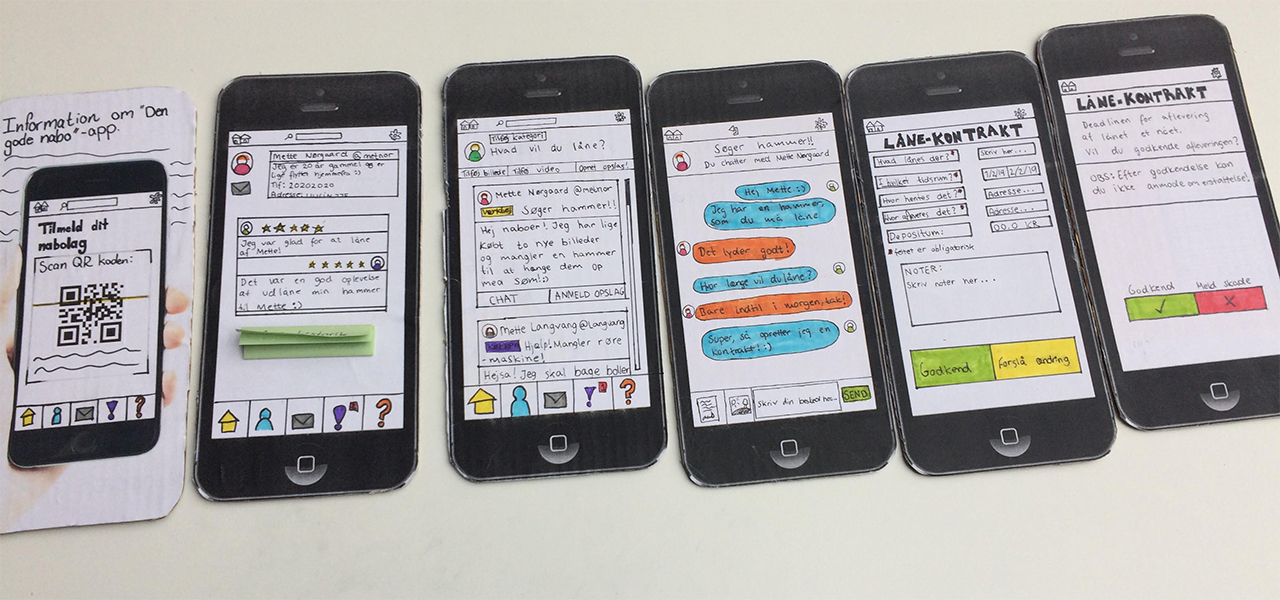 Information om "Den
gode nabo"-app.
Tilmeld dit
nabolag
Scan QR koden:
Mette Nørgaard @metnor
Jeg er 20 år gammel og er
lige flyttet hjemmefra :)
Tlf: 20202020
Adresse:
Jeg var glad for at låne
af Mette!
Det var en god oplevelse
at udlåne min hammer
til Mette :)
Tilføj kategori
Hvad vil du låne?
Tilføj billede Tilføj video Opret opslag!
Mette Nørgaard @metnor
Værktøj Søger hammer!!
Hej naboer! Jeg har lige
købt to nye billeder
og mangler en hammer
til at hænge dem op
med søm!:)
CHAT ANMELD OPSLAG
Mette Langvang @langvang
Hjælp! Mangler røre
-maskine!
Hejsa! Jeg skal bage boller
Søger hammer!!
Du chatter med Mette Nørgaard
Hej Mette :)
Jeg har en hammer,
som du må låne
Det lyder godt!
Hvor længe vil du låne?
Bare indtil i morgen, tak!
Super, så opretter jeg en
kontrakt! :)
Skriv din besked her...
SEND
LÅNE-KONTRAKT
Hvad lånes der?* Skriv her...
I hvilket tidsrum?* 1/2/19 2/2/19
Hvor hentes det?* Adresse...
Hvor afleveres det?* Adresse...
Depositum: 00.0 KR
*feltet er obligatorisk
NOTER:
Skriv noter her...
Godkend Forslå ændring
LÅNE-KONTRAKT
Deadlinen for aflevering
af lånet er nået.
Vil du godkende afleveringen?
OBS: Efter godkendelse kan
du ikke anmode om erstattelse!
Godkend Meld skade